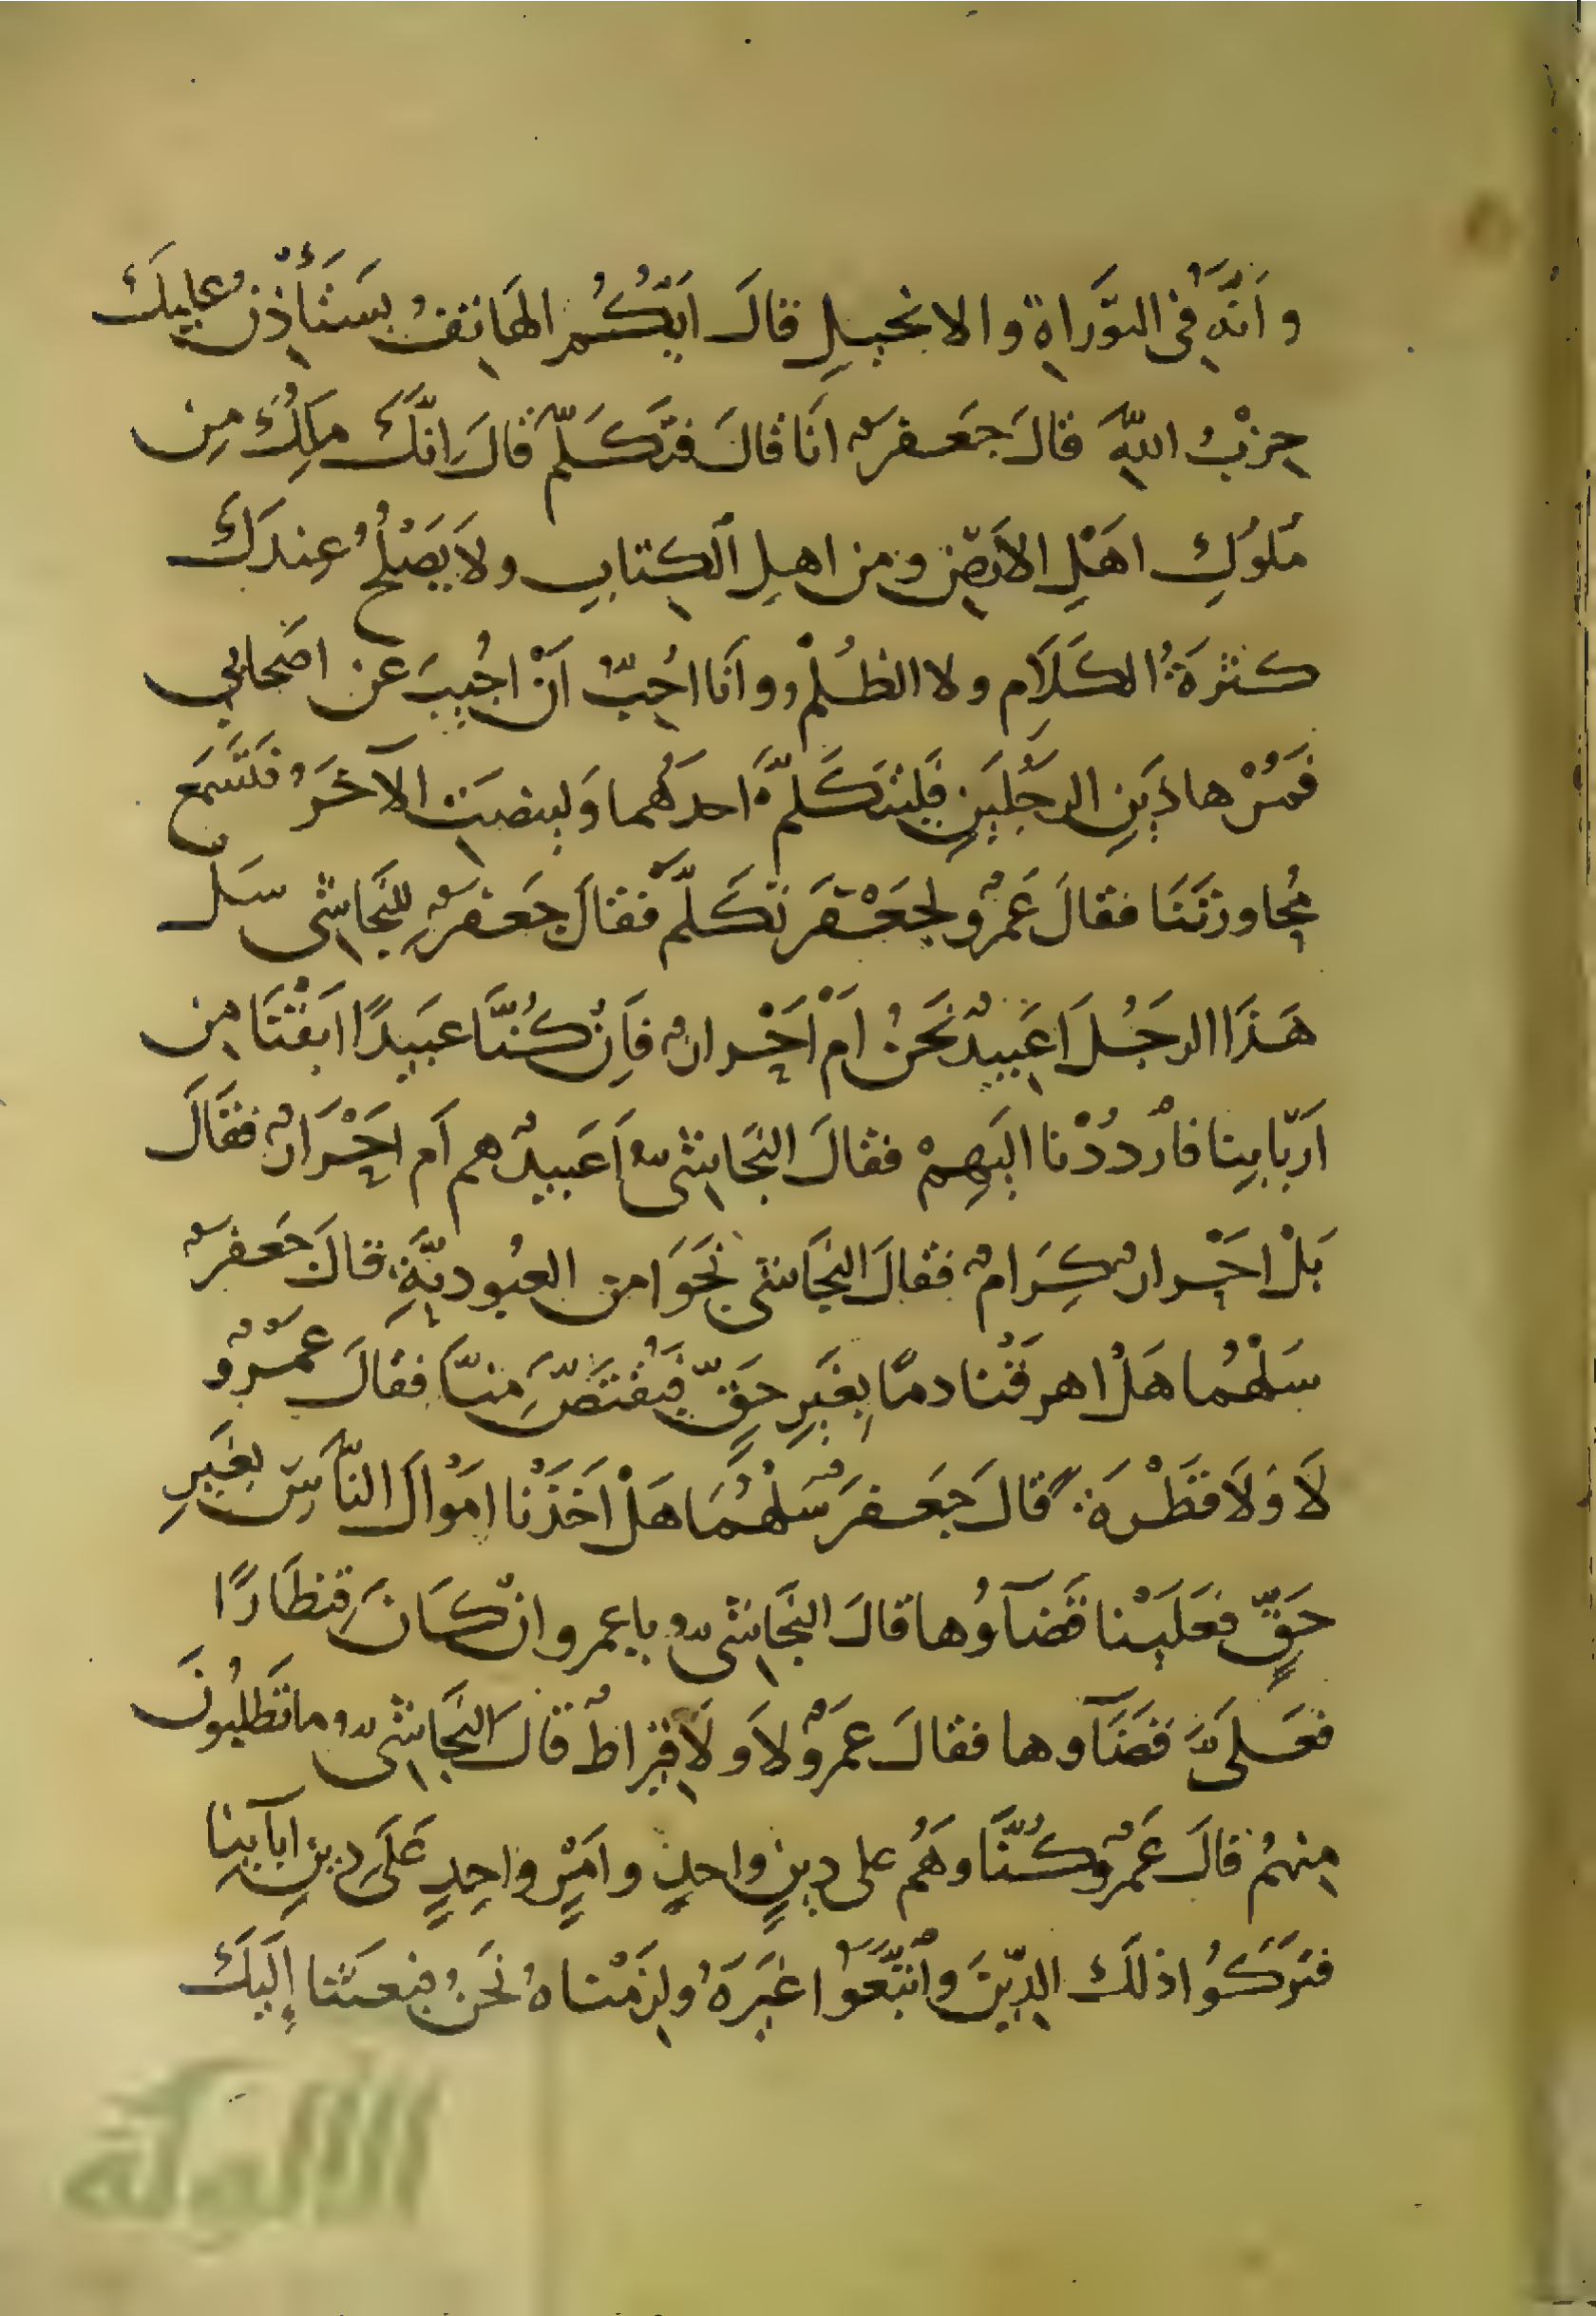 وَاَنَّهُ فِي التَّوَرَاةِ والانجيلِ قالَ اَيُّكُمُ الهَاتِفُ يسَتَأْذِنُ عليكَ
حِزْبُ اللّهِ قالَ جَعَفرٌ اَنَا قالَ فتَكَلَّمْ قالَ اِنَّكَ مَلِكٌ مِن
مُلوُكِ اهَلِ الاَرضِ ومن اهلِ الكِتابِ ولاَ يَصْلُحُ عِندَكَ
كَثرَةُ الكَلاَمِ ولا الظُلْمُ وَاَنَا احُِبُّ اَنْ اجُيِبَ عَن اصَحابِي
فَمُرْ هاذَيِنِ الرجُلَينِ فَليْتَكَلَّمْ احدُهُما وَلينصِتِ الآخَرُ فَتَسَمع
مُحِاورَتَنَا فقالَ عَمْروٌ لِجَعْفَرَ تَكَلَّمْ فَقالَ جَعَفرٌ لِلنَجَاشِي سَل
هَذَا الرجُلَ اَعَبيِدٌ نَحنُ اَمْ اَحْرارٌ فَاِنْ كُنَّا عبَيدًا ابَقْنَا مِن
اَربَّابِنا فارْدُدْنا اليَهِمْ فقالَ النَجَاشِيُّ اَعَبيدٌ هم اَم احَْرَارٌ فقَالَ
بَلْ احَْرارٌ كِرَامٌ فقالَ النَجَاشي نَجَوَا من العبُوديَّةِ قالَ جَعفرٌ
سَلْهُما هَلْ اهرقْنا دمًا بِغَيرِ حَقٍّ فيُقتَصَّ مِنَّا فقَالَ عَمْروٌ
لاَ وَلاَ قَطْرَةٌ قالَ جَعَفرٌ سَلْهُمَا هَلْ اَخَذْنا امَوْالَ النَّاسِ بِغَيرِ
حَقٍّ فعَلَيْنا قَضَآؤُها قالَ النَجَاشِيُّ ياعمرو انْ كَانَ قِنطَارًا
فعَلَىَّ قضَآوها فقالَ عَمْروٌ لاَ وَلاَ قيِراطٌ قالَ النَجَاشِيُّ ماتَطلبُونَ
مِنهُم قالَ عَمْروٌ كُنَّا وَهُم على دينٍ واحدٍ وامَرٍ واحِدٍ عَلَى دِينِ ابآيِنا
فتَركَوُا ذلَكَ الدِّينَ وَاتَّبَعَوُا غَيرَهُ ولزِمَْناهُ نَحَنُ فبعَثَنا إِلَيكَ